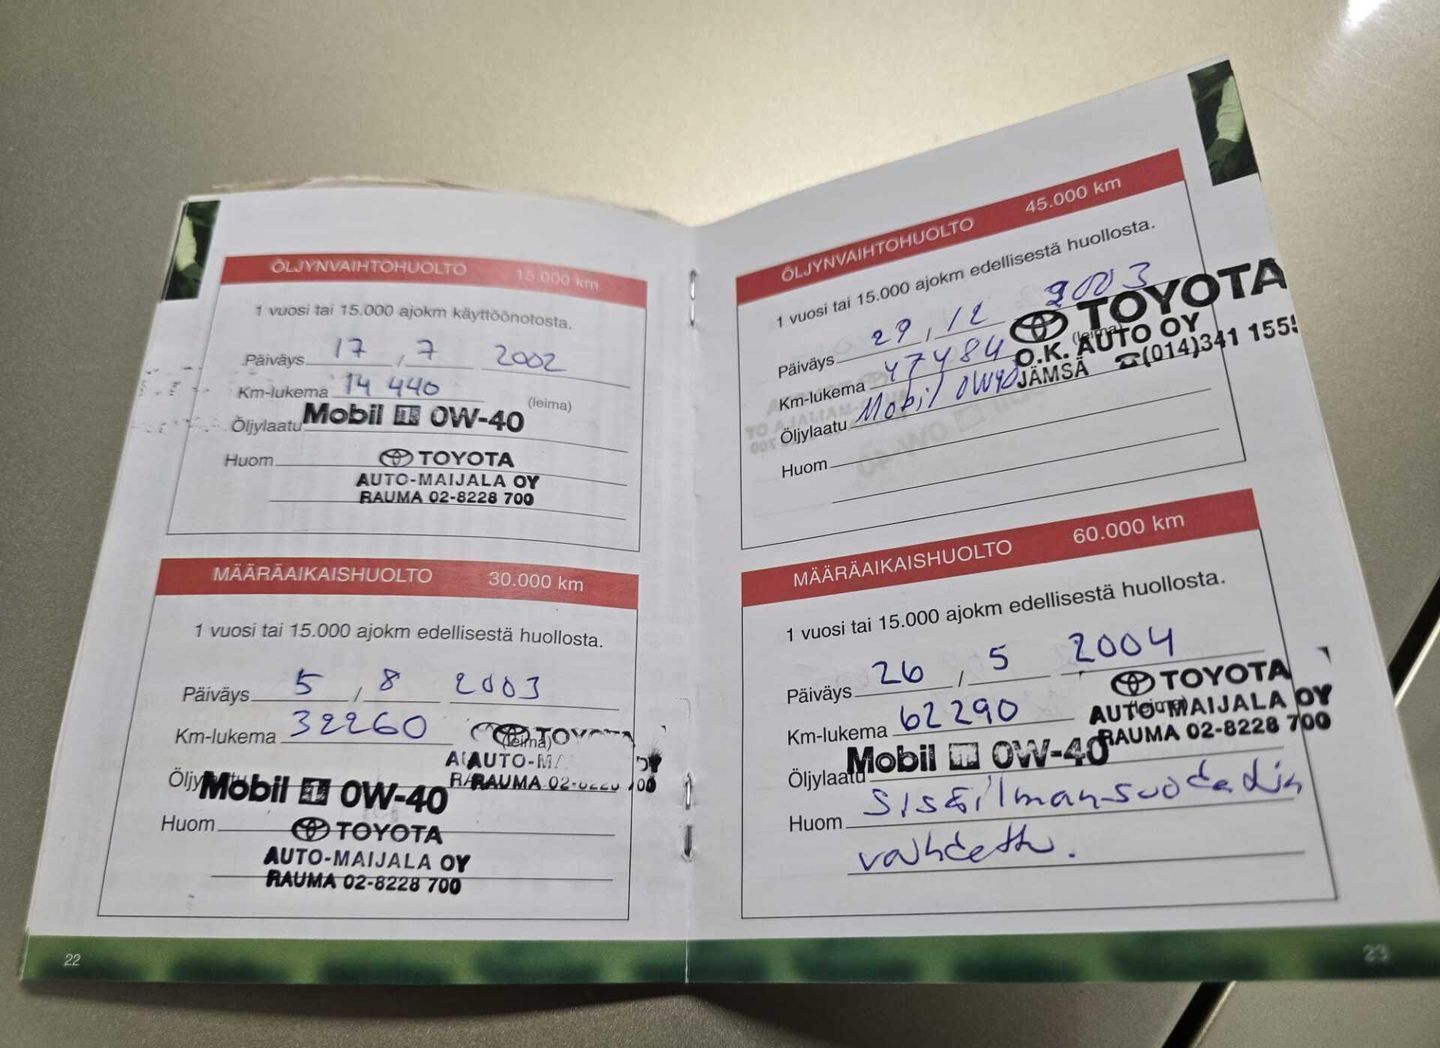 ÖLJYNVAIHTOHUOLTO 15.000 km
1 vuosi tai 15.000 ajokm käyttöönotosta.
Päiväys 17 , 7 2002
Km-lukema 14 440
(leima)
Öljylaatu Mobil 1 0W-40
Huom
TOYOTA
AUTO-MAIJALA OY
RAUMA 02-8228 700
MÄÄRÄAIKAISHUOLTO 30.000 km
1 vuosi tai 15.000 ajokm edellisestä huollosta.
Päiväys 5 / 8 2003
Km-lukema 32260
TOYOTA
(leima)
AUTO-M
RAUMA 02-
Mobil 1 0W-40
Huom
TOYOTA
AUTO-MAIJALA OY
RAUMA 02-8228 700
22
ÖLJYNVAIHTOHUOLTO 45.000 km
1 vuosi tai 15.000 ajokm edellisestä huollosta.
Päiväys 29 , 12 2003
TOYOTA
Km-lukema 47484
(leima)
O.K. AUTO OY
JÄMSÄ ☎(014)341 155
Öljylaatu Mobil 0W40
Huom
MÄÄRÄAIKAISHUOLTO 60.000 km
1 vuosi tai 15.000 ajokm edellisestä huollosta.
Päiväys 26 , 5 2004
TOYOTA
Km-lukema 62290
(leima)
AUTO-MAIJALA OY
RAUMA 02-8228 700
Öljylaatu Mobil 1 0W-40
Huom sisäilmansuodadin
vaihdettu.
23